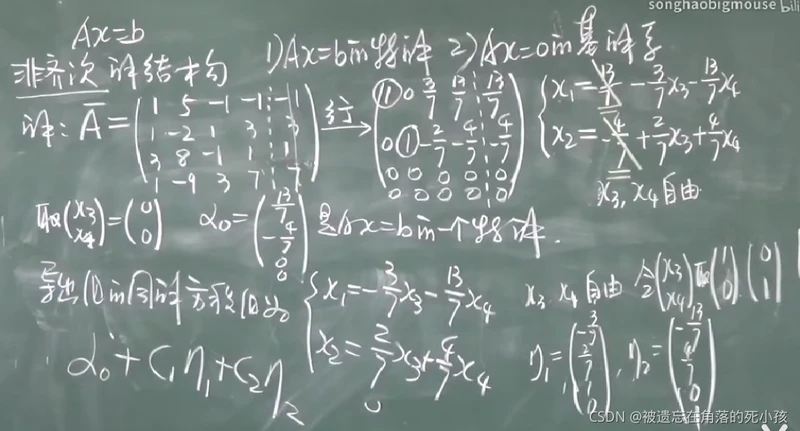 songhaobigmouse bili
Ax=b
非齐次的结构 1) Ax=b的特解 2) Ax=0的基础解系
解: Ā = (1 5 -1 -1 ¦ -1; 1 -2 1 3 ¦ 3; 3 8 -1 1 ¦ 1; 1 -9 3 7 ¦ 7) 行→ (① 0 3/7 13/7 ¦ 13/7; 0 ① -2/7 -4/7 ¦ -4/7; 0 0 0 0 ¦ 0; 0 0 0 0 ¦ 0) { x₁ = 13/7 - 3/7 x₃ - 13/7 x₄
x₂ = -4/7 + 2/7 x₃ + 4/7 x₄
x₃, x₄ 自由
取 (x₃; x₄) = (0; 0) α₀ = (13/7; -4/7; 0; 0) 是Ax=b的一个特解.
导出(1)的同解方程 { x₁ = -3/7 x₃ - 13/7 x₄ x₃, x₄ 自由 令 (x₃; x₄) 取 (1; 0), (0; 1)
x₂ = 2/7 x₃ + 4/7 x₄ η₁ = (-3/7; 2/7; 1; 0), η₂ = (-13/7; 4/7; 0; 1)
α₀ + C₁η₁ + C₂η₂
CSDN @被遗忘在角落的死小孩